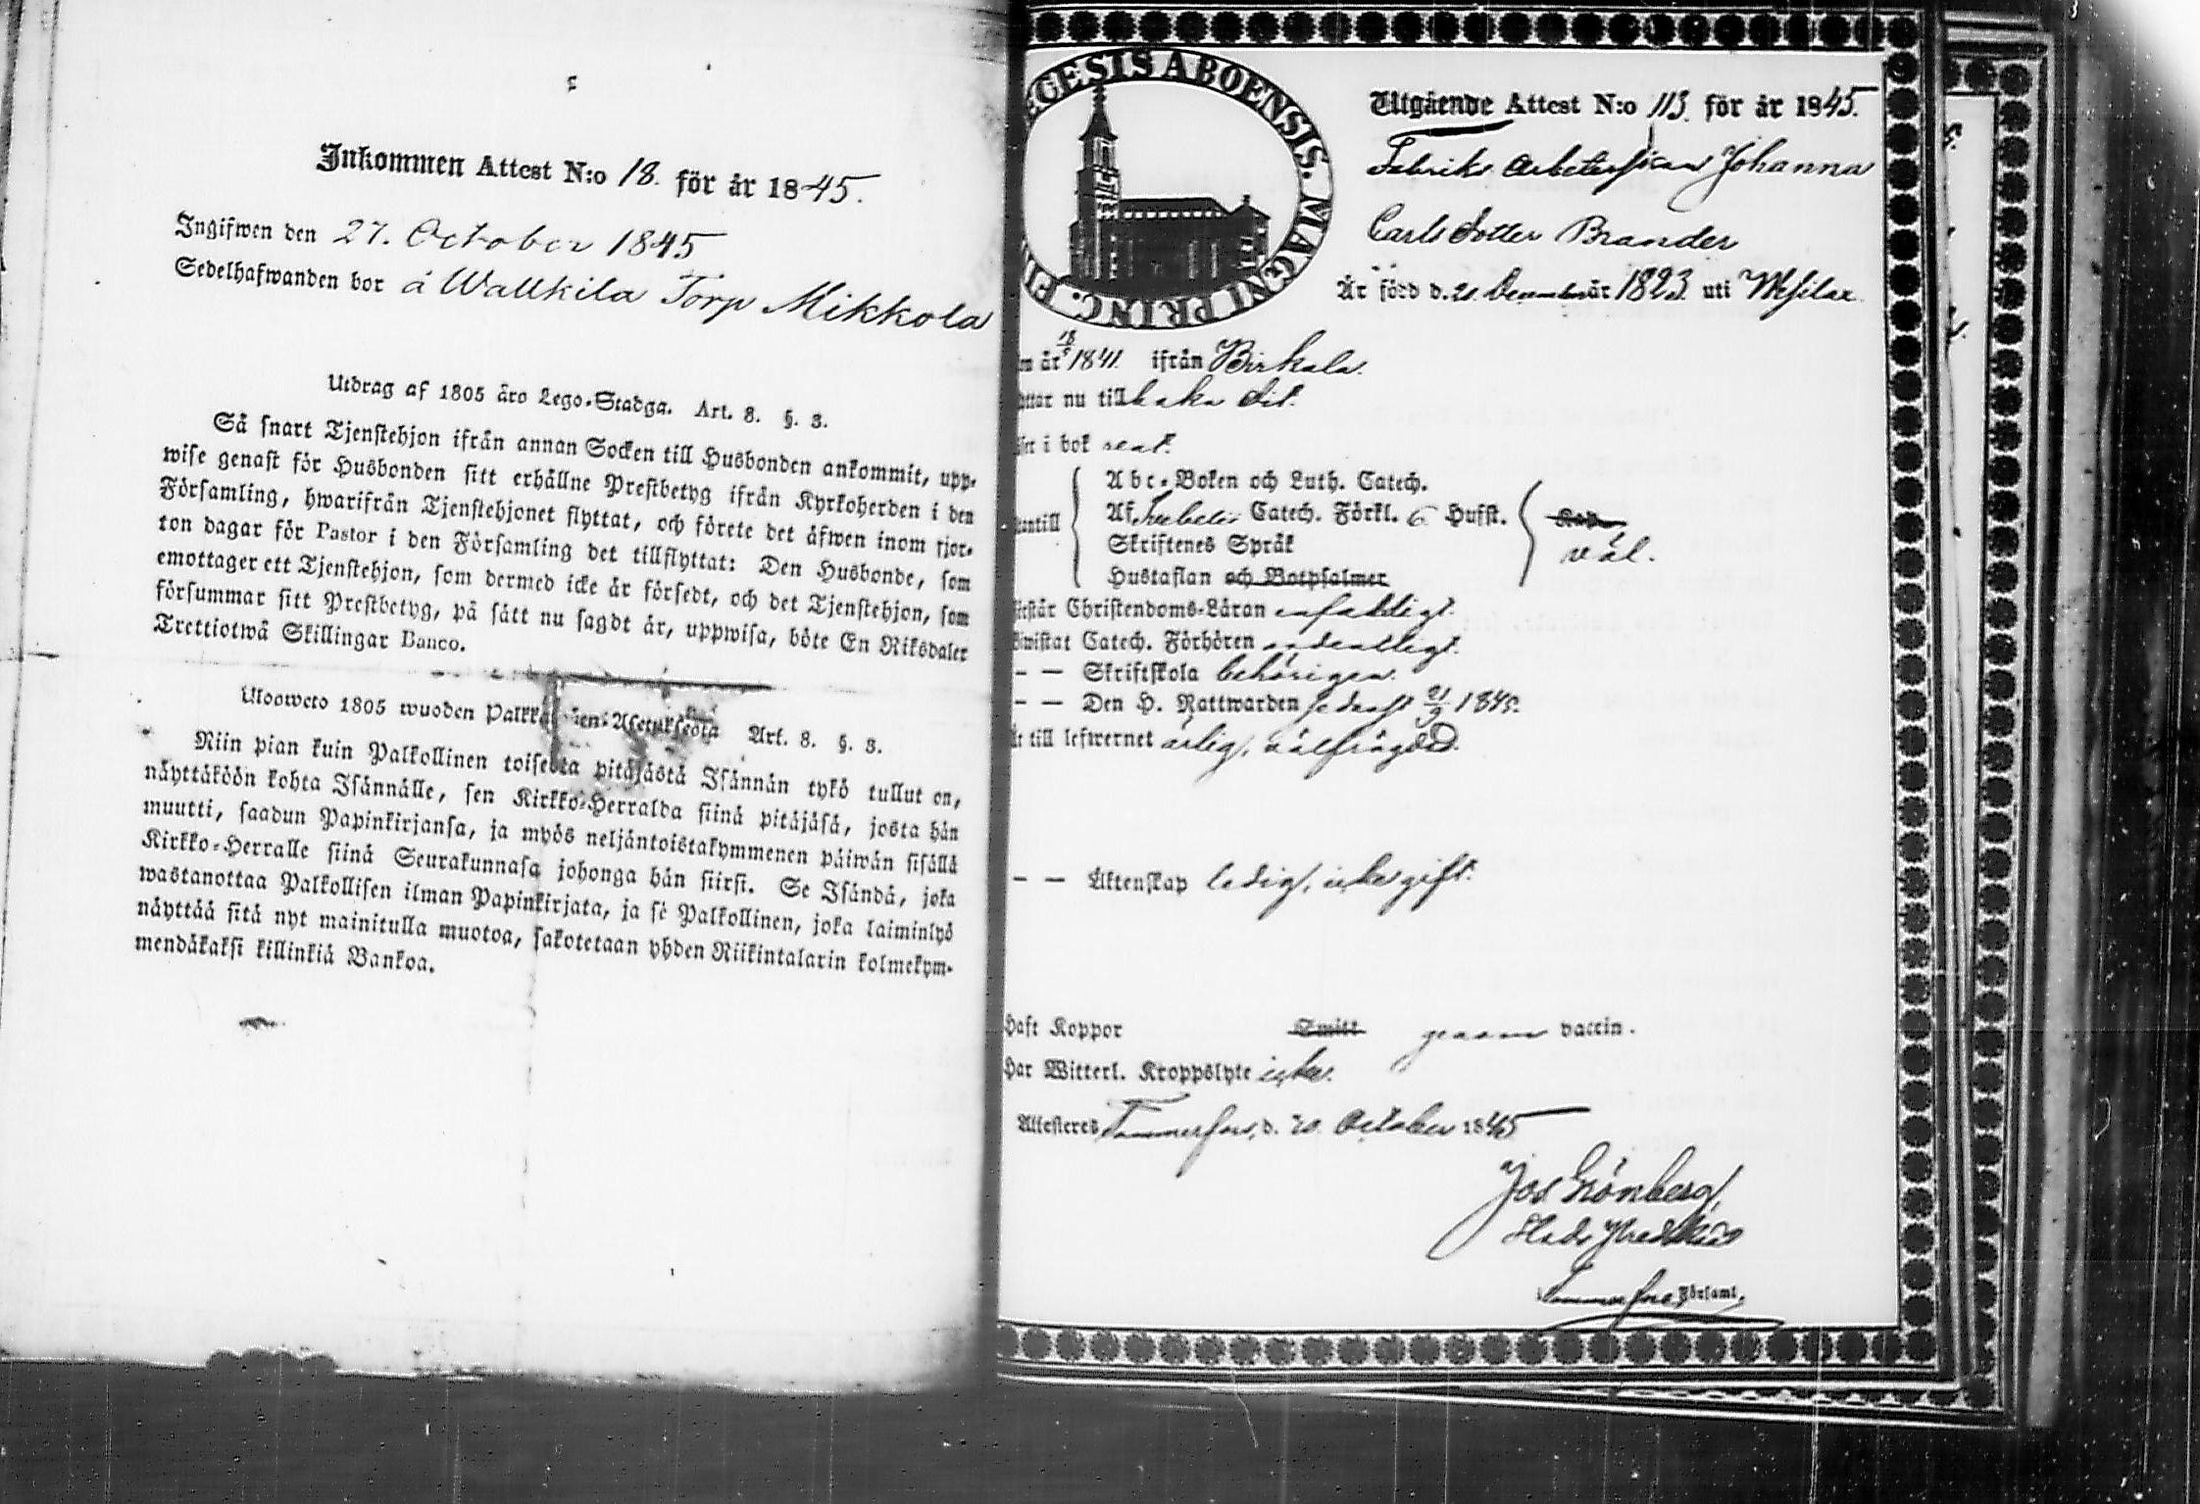 Inkommen Attest N:o 18. för år 1845.
Ingifwen den 27. October 1845
Sedelhafwanden bor å Wallkila Torp Mikkola
Utdrag af 1805 åro Lego-Stadga. Art. 8. §. 3.
Så snart Tjenstehjon ifrån annan Socken till Husbonden ankommit, upp-
wise genast för Husbonden sitt erhållne Prestbetyg ifrån Kyrkoherden i den
Församling, hwarifrån Tjenstehjonet flyttat, och förete det äfwen inom fjor-
ton dagar för Pastor i den Församling det tillflyttat: Den Husbonde, som
emottager ett Tjenstehjon, som dermed icke är försedt, och det Tjenstehjon, som
försummar sitt Prestbetyg, på sätt nu sagdt är, uppwisa, böte En Riksdaler
Trettiotwå Skillingar Banco.
Ulooweto 1805 wuoden Palkka ien-Asetuksesta Art. 8. §. 3.
Niin pian kuin Palkollinen toisesta pitäjästä Isännän tykö tullut on,
näyttäköön kohta Isännälle, sen Kirkko-Herralda siinä pitäjäsä, josta hän
muutti, saadun Papinkirjansa, ja myös neljäntoistakymmenen päiwän sisällä
Kirkko-Herralle siinä Seurakunnasa johonga hän siirsi. Se Isändä, joka
wastanottaa Palkollisen ilman Papinkirjata, ja se Palkollinen, joka laiminlyö
näyttää sitä nyt mainitulla muotoa, sakotetaan yhden Riikintalarin kolmekym-
mendäkaksi killinkiä Bankoa.
EGESIS ABOENSIS. MAGNI PRINC. FI
Utgående Attest N:o 113. för år 1845.
Fabriks Arbeterskan Johanna
Carlsdotter Brander
Är född d. 21 December år 1823. uti Wesilax
år 18/5 1841. ifrån Birkala.
ttar nu tillbaka dit.
i bok rent.
antill
Abc-Boken och Luth. Catech.
Af Catech. Förkl. 6 Husst.
Skriftenes Språk
Hustaflan och Botpsalmer
väl.
rstår Christendoms-Läran enfaldigt.
wistat Catech. Förhören ordentligt.
— — Skriftskola behörigen.
— — Den H. Nattwarden sednast 21/9 1845.
till lefwernet ärlig, välfrägdad.
— — Äktenskap ledig, icke gift.
Haft Koppor Smitt genom vaccin.
Har Witterl. Kroppslyte icke.
Attesteras Tammerfors, d. 20. October 1845
Jos Grönberg,
Stads Predikas
Tammerfors Församl.